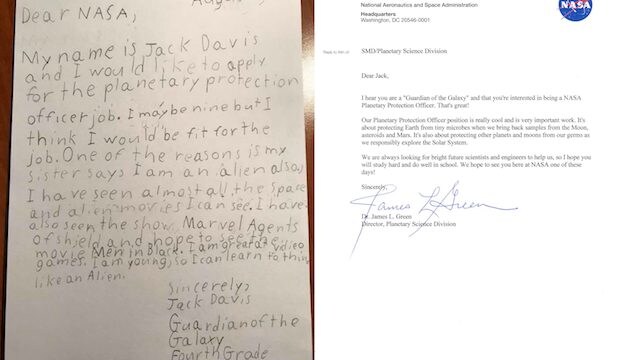 August
Dear NASA,
My name is Jack Davis
and I would like to apply
for the planetary protection
officer job. I may be nine but I
think I would be fit for the
job. One of the reasons is my
sister says I am an alien also,
I have seen almost all the space
and alien movies I can see. I have
also seen the show Marvel Agents
of shield and hope to see the
movie Men in Black. I am great at video
games. I am young, so I can learn to think
like an Alien.
Sincerely,
Jack Davis
Guardian of the
Galaxy
Fourth Grade
National Aeronautics and Space Administration
Headquarters
Washington, DC 20546-0001
NASA
Reply to Attn of:
SMD/Planetary Science Division
Dear Jack,
I hear you are a "Guardian of the Galaxy" and that you're interested in being a NASA
Planetary Protection Officer. That's great!
Our Planetary Protection Officer position is really cool and is very important work. It's
about protecting Earth from tiny microbes when we bring back samples from the Moon,
asteroids and Mars. It's also about protecting other planets and moons from our germs as
we responsibly explore the Solar System.
We are always looking for bright future scientists and engineers to help us, so I hope you
will study hard and do well in school. We hope to see you here at NASA one of these
days!
Sincerely,
James L Green
Dr. James L. Green
Director, Planetary Science Division